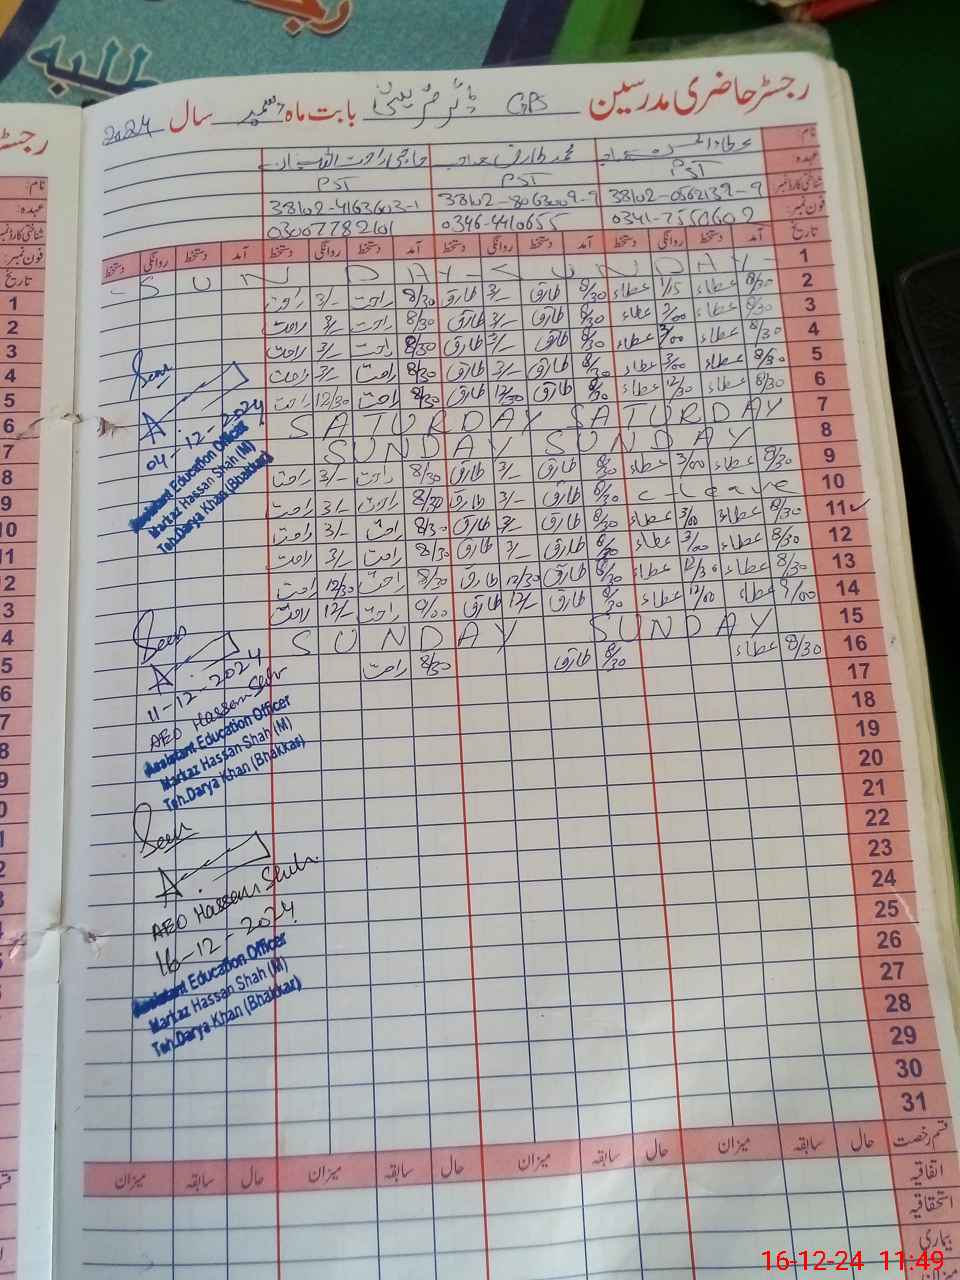 رجسٹر حاضری مدرسین GPS بابت ماہ دسمبر سال 2024
نام:
محمد طارق صاحب
عہدہ: PST PST PST
شناختی کارڈ نمبر 38102-0562139-9 38102-8063009-9 38102-4163603-1
فون نمبر: 0341-7550602 0346-4410655 03007782101
تاریخ آمد دستخط روانگی دستخط آمد دستخط روانگی دستخط آمد دستخط روانگی دستخط آمد دستخط روانگی دستخط
1 SUNDAY SUNDAY
2 8/30 عطاء 1/15 عطاء 8/30 طارق 3/- طارق 8/30 راحت 3/- راحت
3 8/30 عطاء 3/00 عطاء 8/30 طارق 3/- طارق 8/30 راحت 3/- راحت
4 8/30 عطاء 3/00 عطاء 8/30 طارق 3/- طارق 8/30 راحت 3/- راحت
5 8/30 عطاء 3/00 عطاء 8/30 طارق 3/- طارق 8/30 راحت 3/- راحت
6 8/30 عطاء 12/30 عطاء 8/30 طارق 12/30 طارق 8/30 راحت 12/30 راحت
7 SATURDAY SATURDAY
8 SUNDAY SUNDAY
9 8/30 عطاء 3/00 عطاء 8/30 طارق 3/- طارق 8/30 راحت 3/- راحت
10 C-Leave 8/30 طارق 3/- طارق 8/30 راحت 3/- راحت
11 8/30 عطاء 3/00 عطاء 8/30 طارق 3/- طارق 8/30 راحت 3/- راحت
12 8/30 عطاء 3/00 عطاء 8/30 طارق 3/- طارق 8/30 راحت 3/- راحت
13 8/30 عطاء 12/30 عطاء 8/30 طارق 12/30 طارق 8/30 راحت 12/30 راحت
14 9/00 عطاء 12/00 عطاء 8/30 طارق 12/- طارق 9/00 راحت 12/- راحت
15 SUNDAY SUNDAY
16 8/30 عطاء 8/30 طارق 8/30 راحت
17
18
19
20
21
22
23
24
25
26
27
28
29
30
31
Seen
04-12-2024
Assistant Education Officer
Markaz Hassan Shah (M)
Teh.Darya Khan (Bhakkar)
Seen
11-12-2024
AEO Hassan Shah
Assistant Education Officer
Markaz Hassan Shah (M)
Teh.Darya Khan (Bhakkar)
Seen
AEO Hassan Shah
16-12-2024
Assistant Education Officer
Markaz Hassan Shah (M)
Teh.Darya Khan (Bhakkar)
قسم رخصت حال سابقہ میزان حال سابقہ میزان حال سابقہ میزان حال سابقہ میزان
اتفاقیہ
استحقاقیہ
بیماری
میزان
نام:
عہدہ:
شناختی کارڈ نمبر
فون نمبر:
تاریخ
1
2
3
4
5
6
7
8
9
10
11
16-12-24 11:49